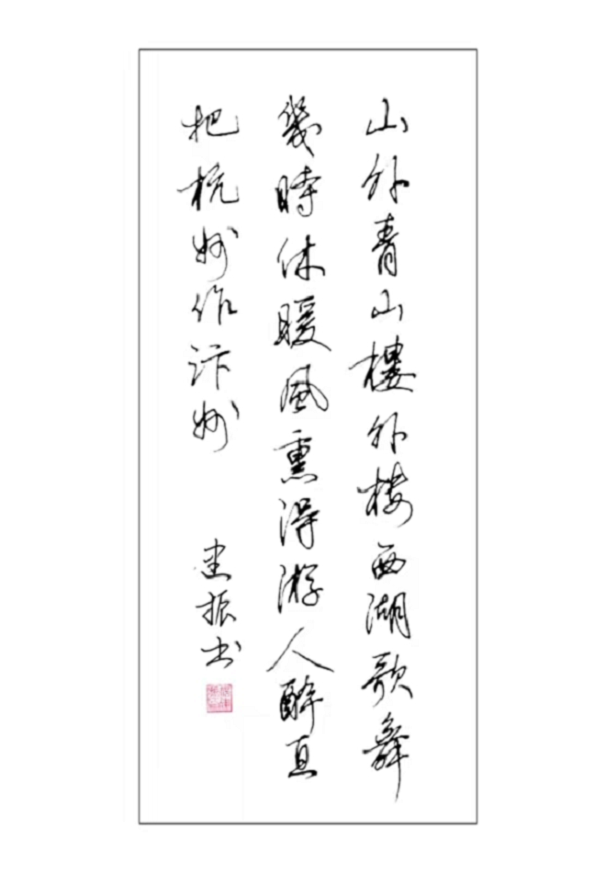 山外青山樓外楼西湖歌舞
幾時休暖風熏得游人醉直
把杭州作汴州
建振书